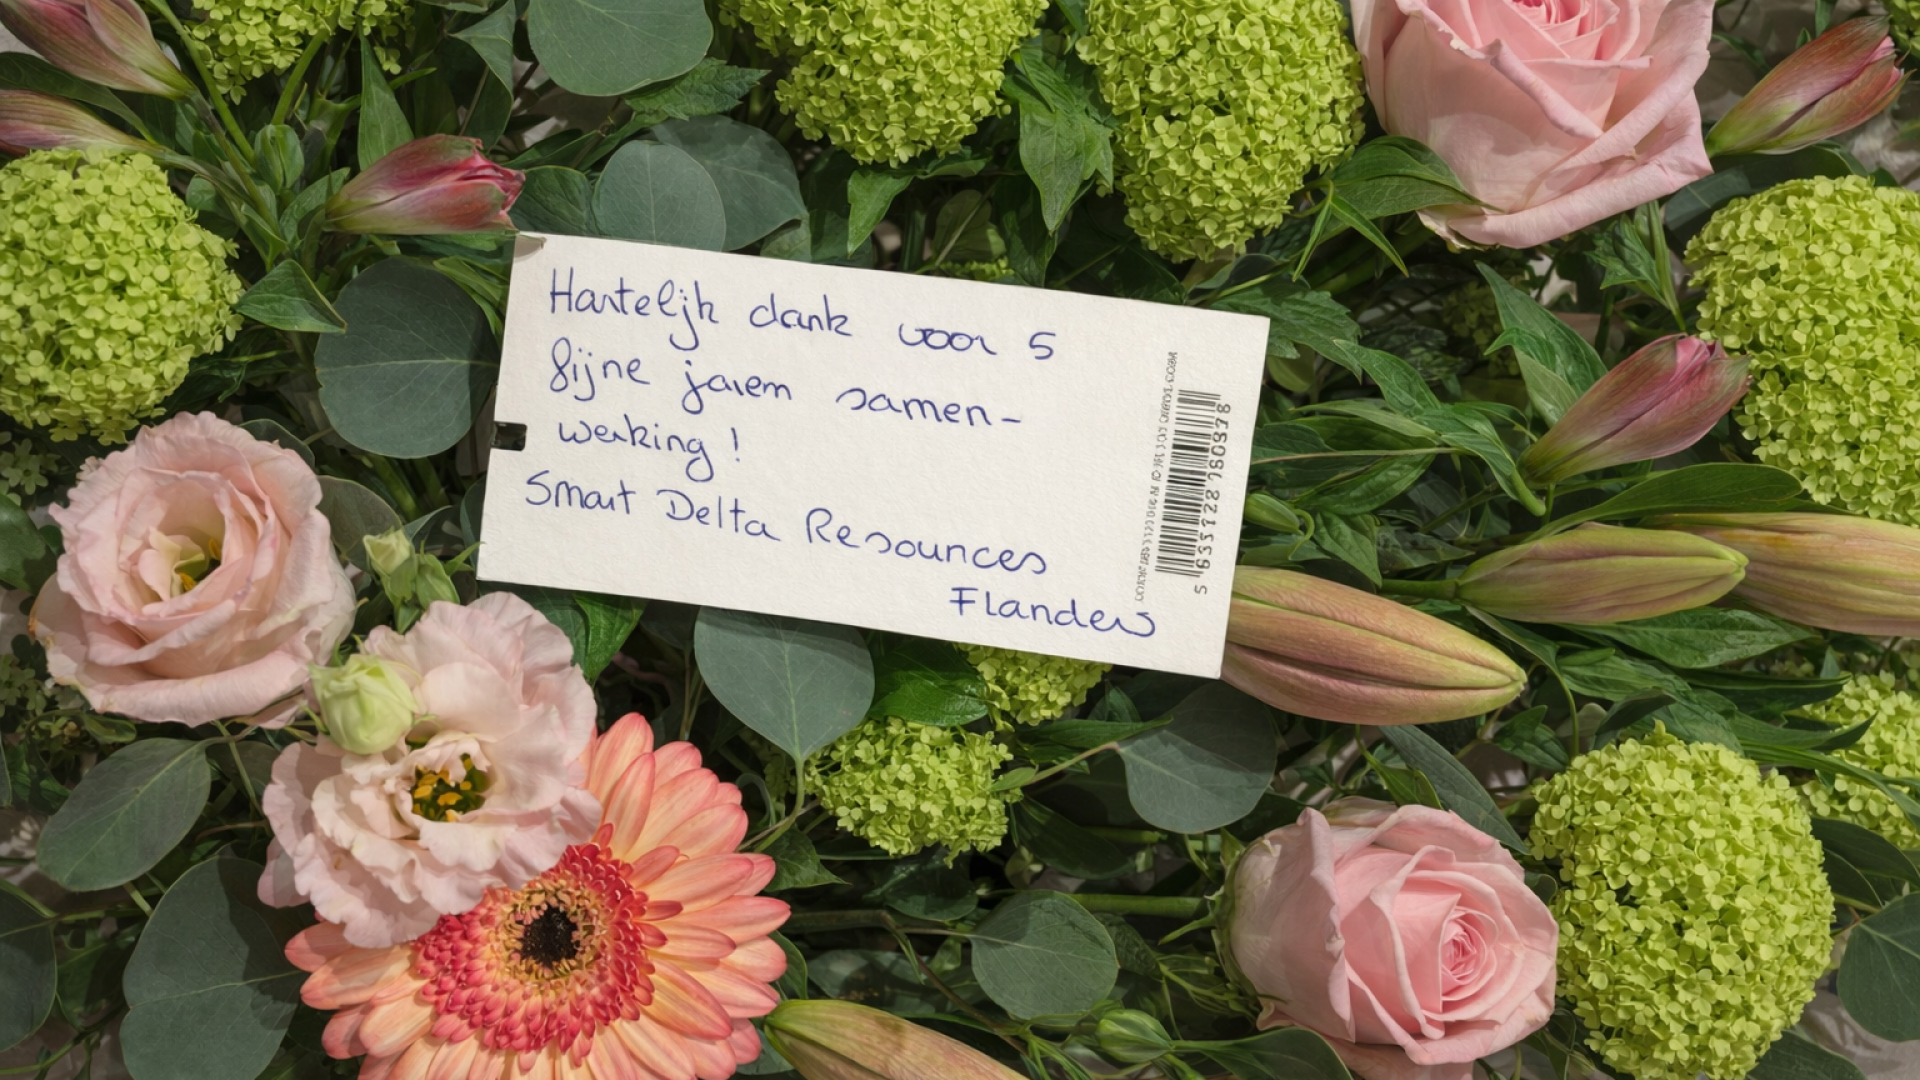 Hartelijk dank voor 5
fijne jaren samen-
werking !
Smart Delta Resources
Flanders